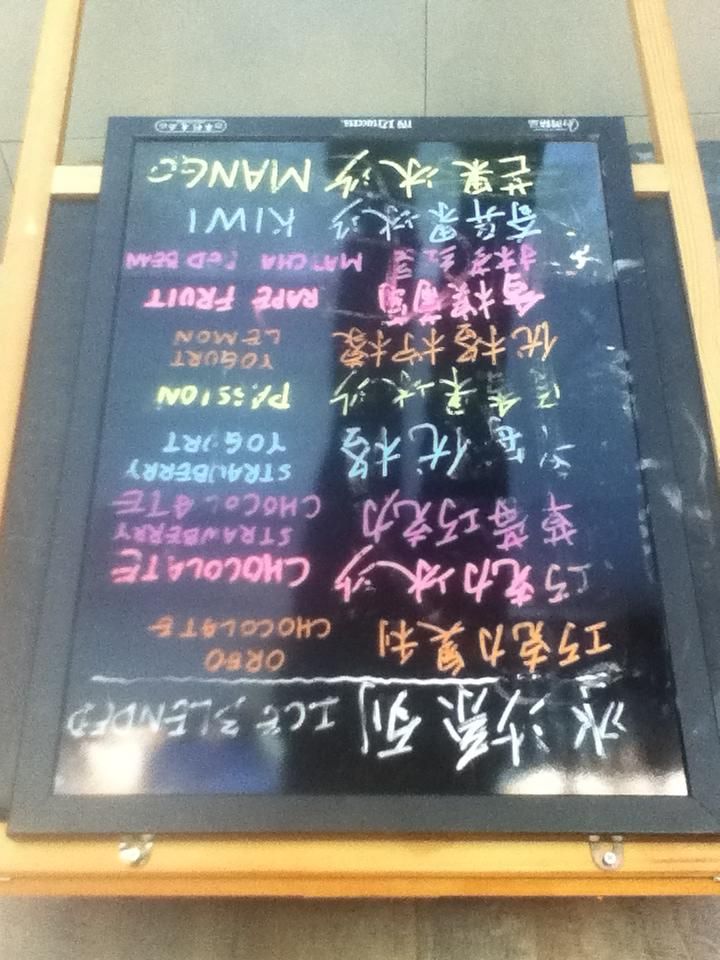 冰沙系列 ICE BLENDED
巧克力奥利 OREO
CHOCOLATE
巧克力冰沙 CHOCOLATE
草莓巧克力 STRAWBERRY
CHOCOLATE
草莓优格 STRAWBERRY
YOGURT
百香果冰沙 PASSION
优格柠檬 YOGURT
LEMON
RAPE FRUIT
抹茶红豆 MATCHA RED BEAN
奇异果冰沙 KIWI
芒果冰沙 MANGO